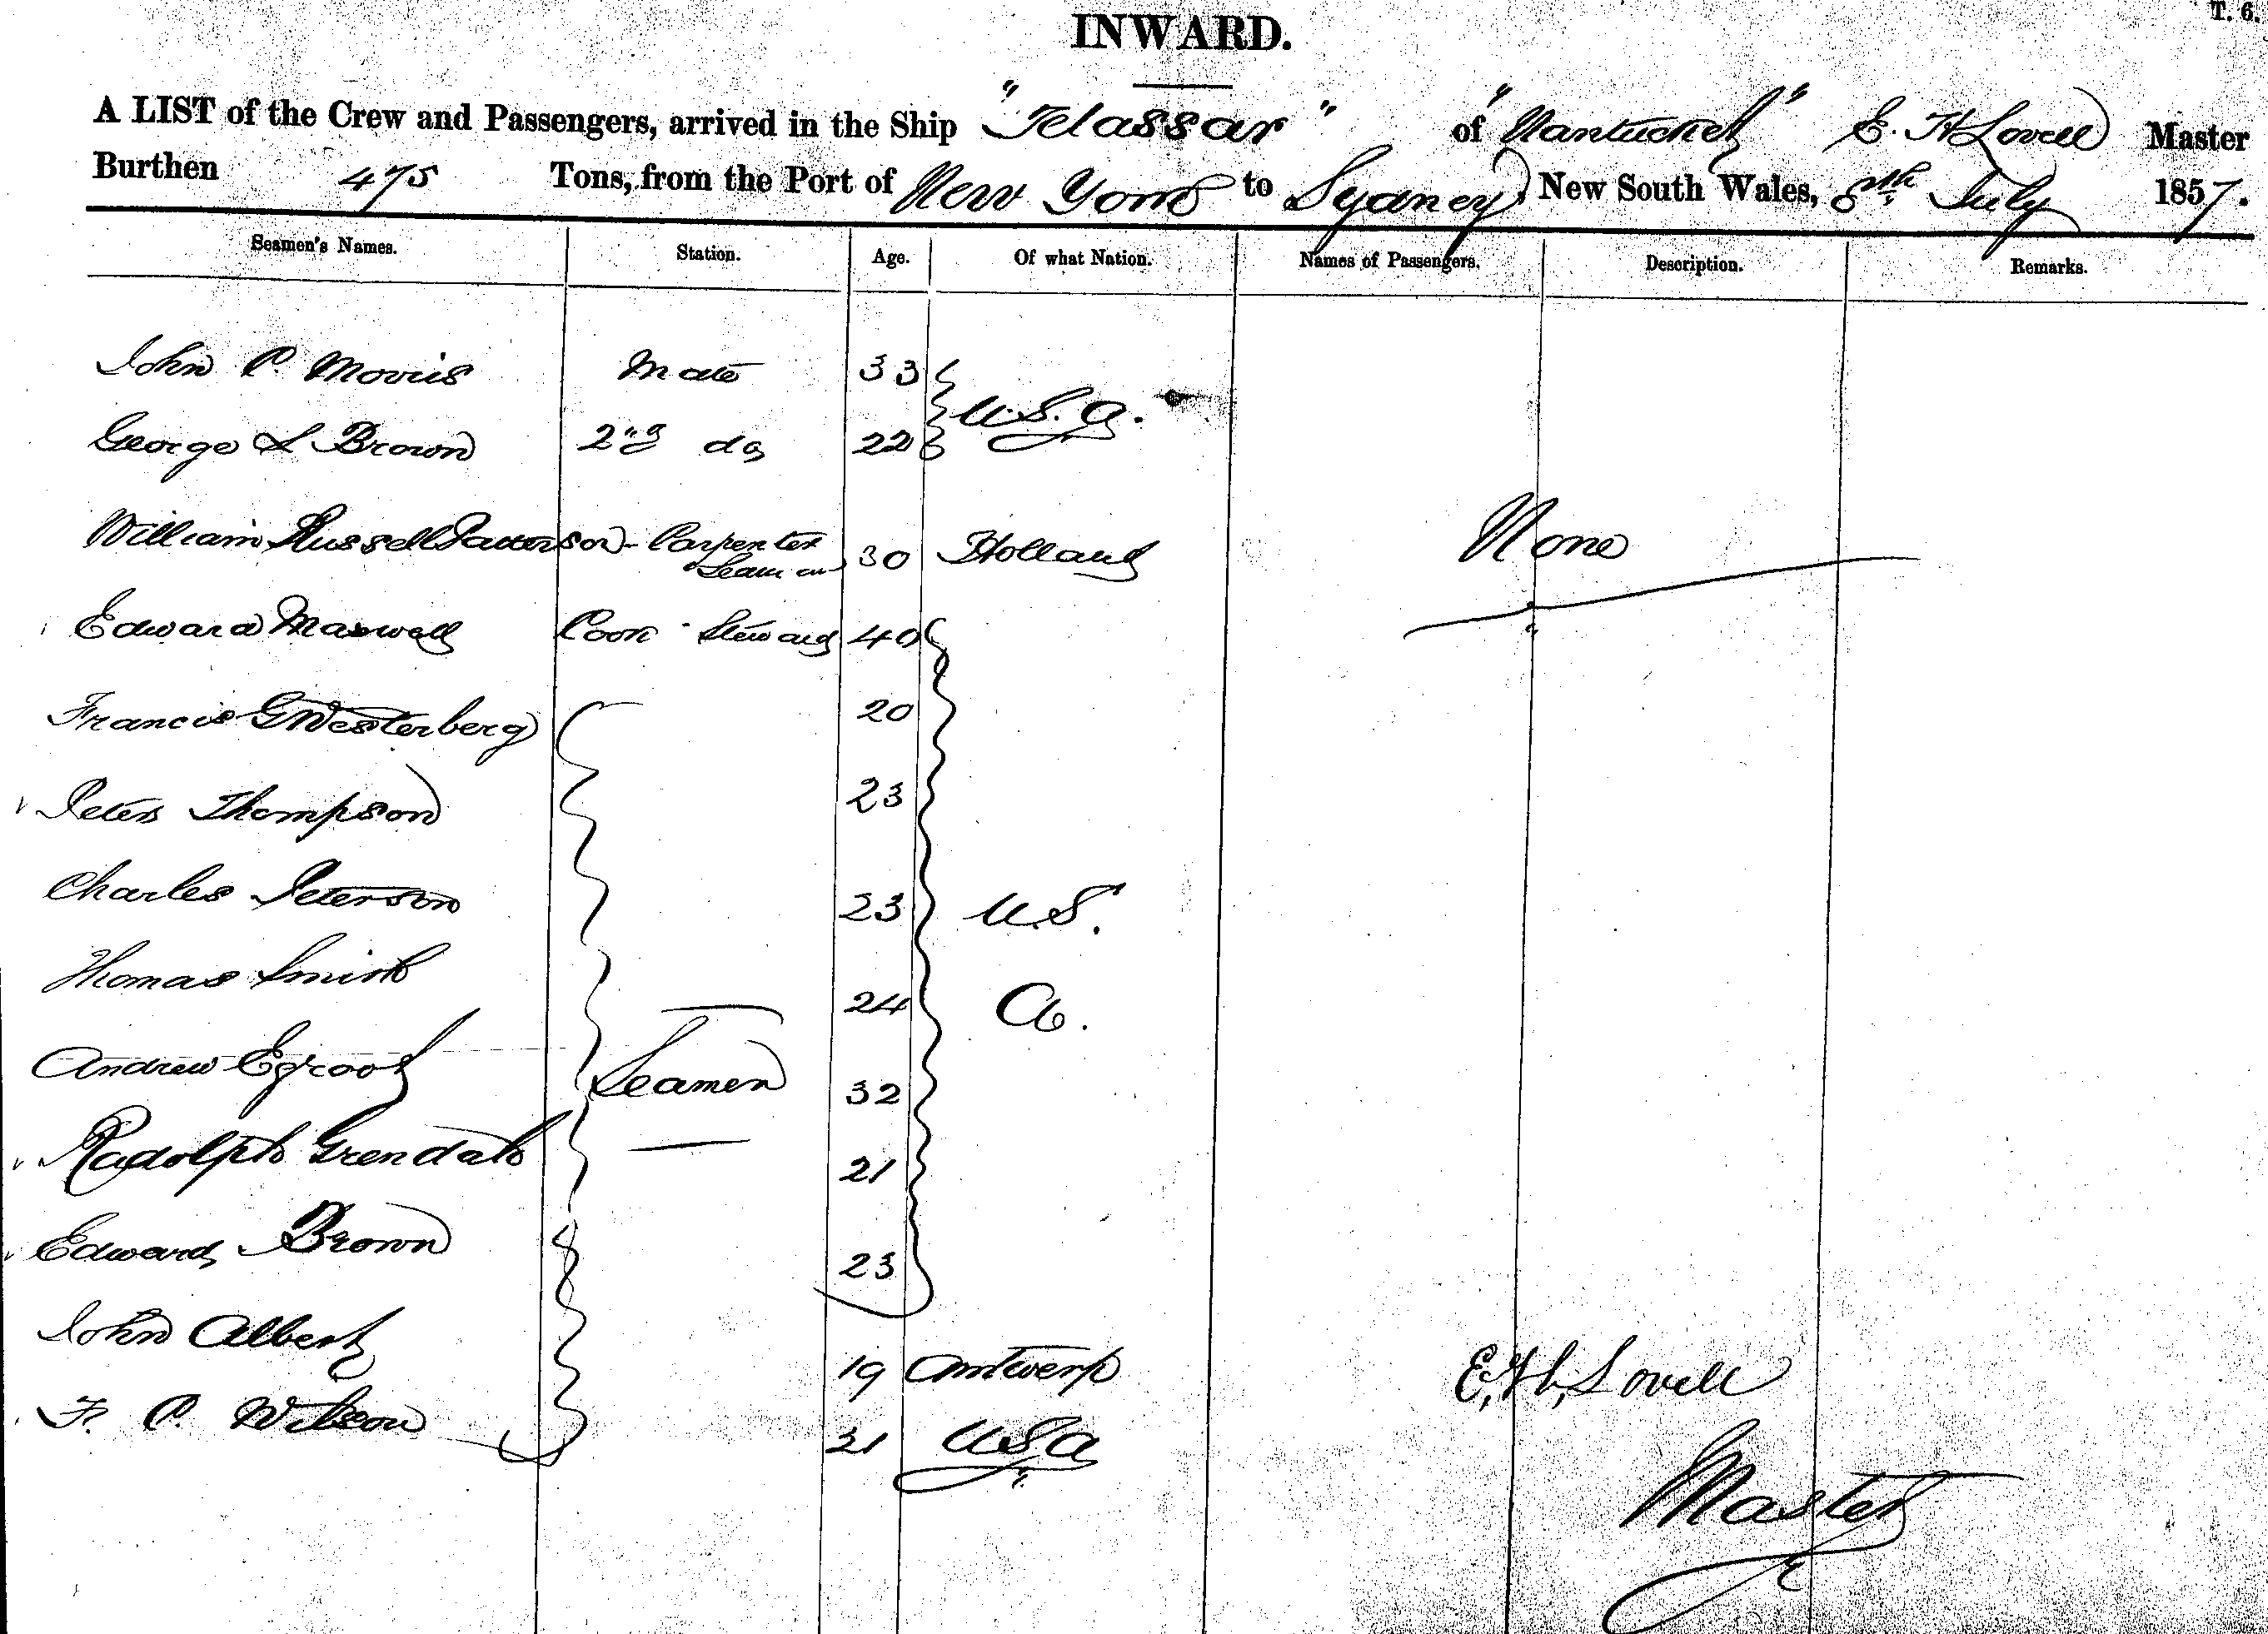 T. 6.
INWARD.
A LIST of the Crew and Passengers, arrived in the Ship "Telassar" of "Nantucket" E. H Lovell Master
Burthen 475 Tons, from the Port of New York to Sydney, New South Wales, 8th July 1857.
Seamen's Names. Station. Age. Of what Nation. Names of Passengers. Description. Remarks.
John P. Morris Mate 33
U.S.A.
George L Brown 2nd do 22
William Russell Patterson - Carpenter
Seaman 30 Holland None
Edward Maxwell Cook Steward 40
Francis G Westerberg 20
Peter Thompson 23
Charles Peterson 23 U.S.
Thomas Smith 24 A.
Andrew Egroot Seamen 32
Radolph Grendah 21
Edward Brown 23
John Albert 19 Antwerp E, H, Lovell
F. P. Wilson 21 USA
Master